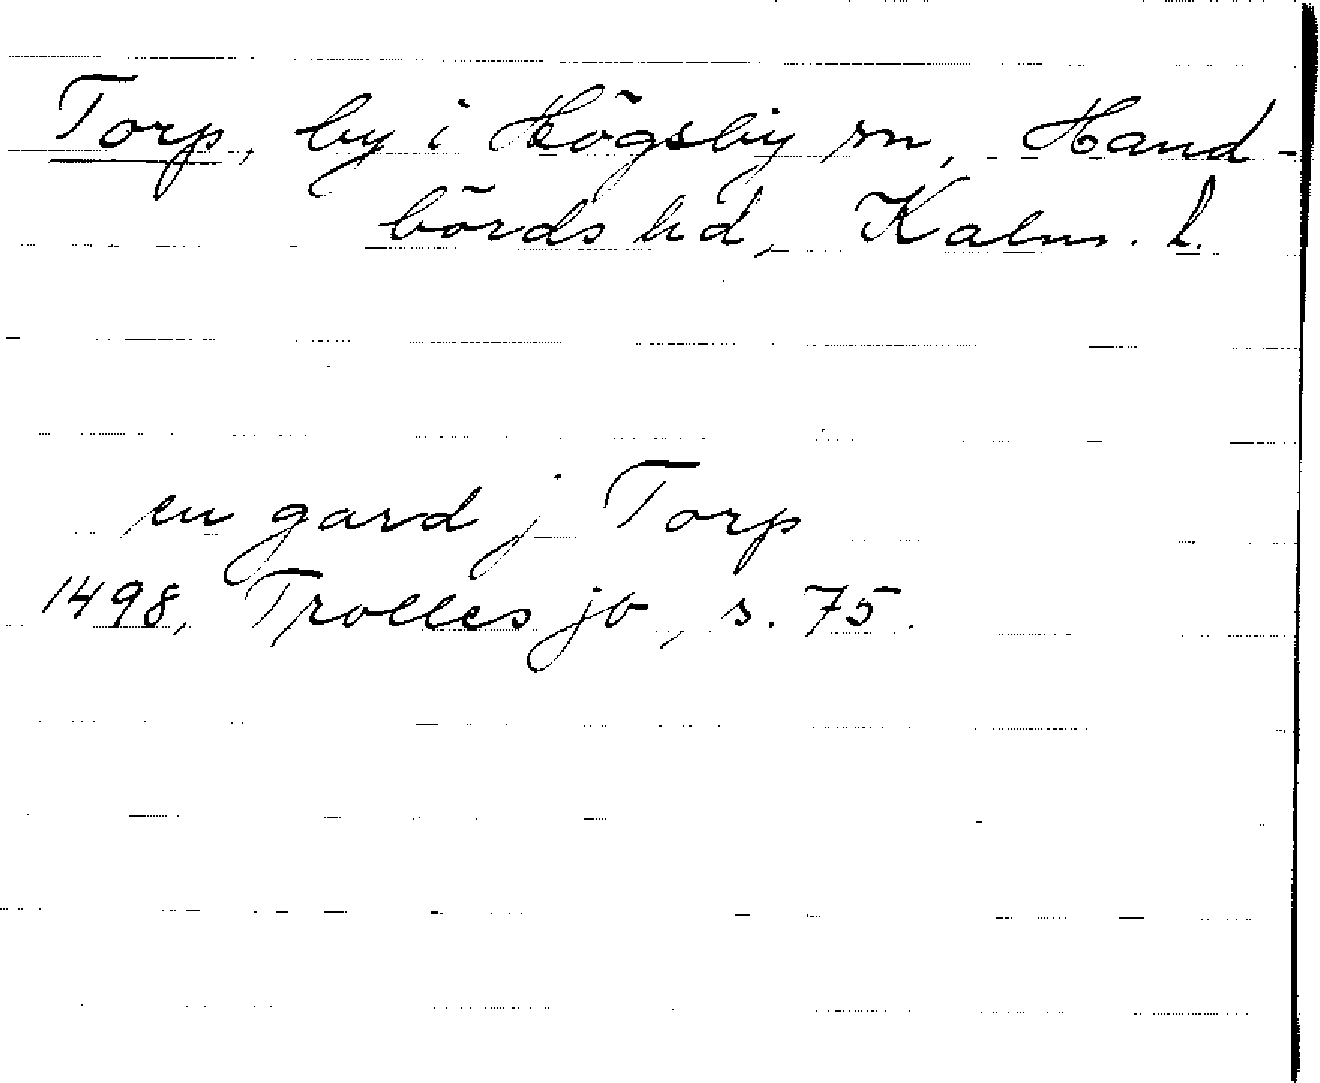 Torp, by i Högsby sn, Hand-
börds hd, Kalm. l.
en gard j Torp
1498, Trolles jb, s. 75.